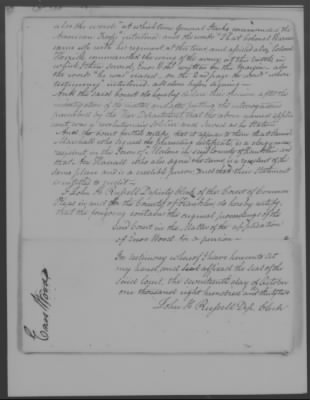 also the words "at which time General Starks commanded the
American Troops" interlined and the words "That Colonel Warner
came up with his regiment at the time and afterwards Colonel
commanded the wing of the army of this battle
the words "he was" on the 2nd page the word "whose
testimony" interlined & before signing —
And the said Court do hereby declare their opinion after the
investigation of the matter and after putting the interrogatories
prescribed by the War Department that the above named applicant
was a revolutionary soldier and served as he states.
And the court further certify that it appears to them that Samuel
Marshall who signed the preceding certificate is a clergyman
resident in the Town of Malone in said County of Franklin and
that who also signed the same is a resident of the
same place and is a credible person and that their statement
is entitled to credit —
I John H Russell Deputy Clerk of the Court of Common
Pleas in and for the County of Franklin do hereby certify
that the foregoing contains the original proceedings of the
said Court in the Matter of the application
of Enos Wood for a pension —
In testimony whereof I have hereunto set
my hand and seal affixed the seal of the
said Court, the seventeenth day of October
one thousand eight hundred and thirty two
John H Russell Dep. Clerk
Enos Wood